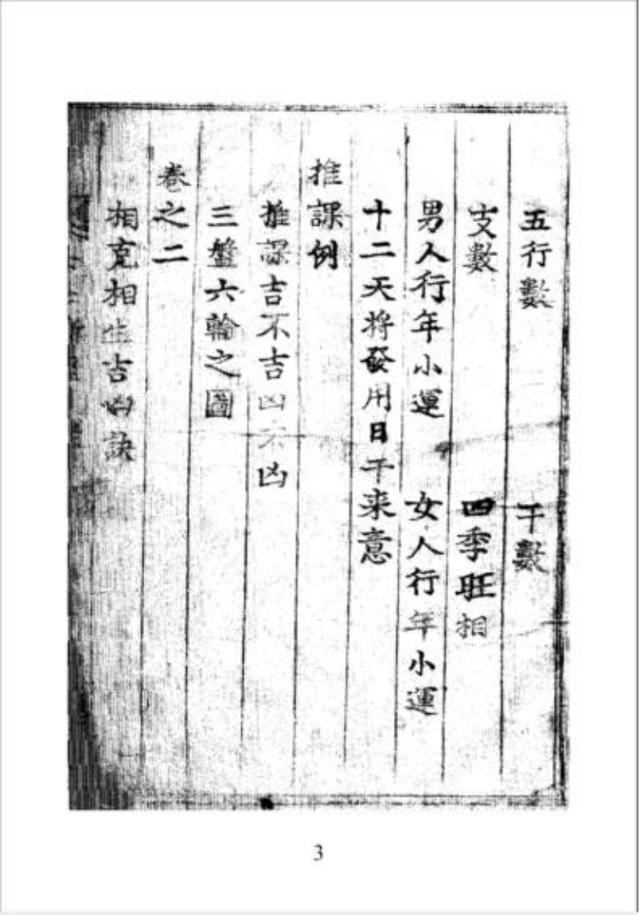 五行數　干數
支數　四季旺相
男人行年小運　女人行年小運
十二天将發用日干来意
推課例
推課吉不吉凶不凶
三盤六輪之圖
卷之二
相克相生吉凶訣
3